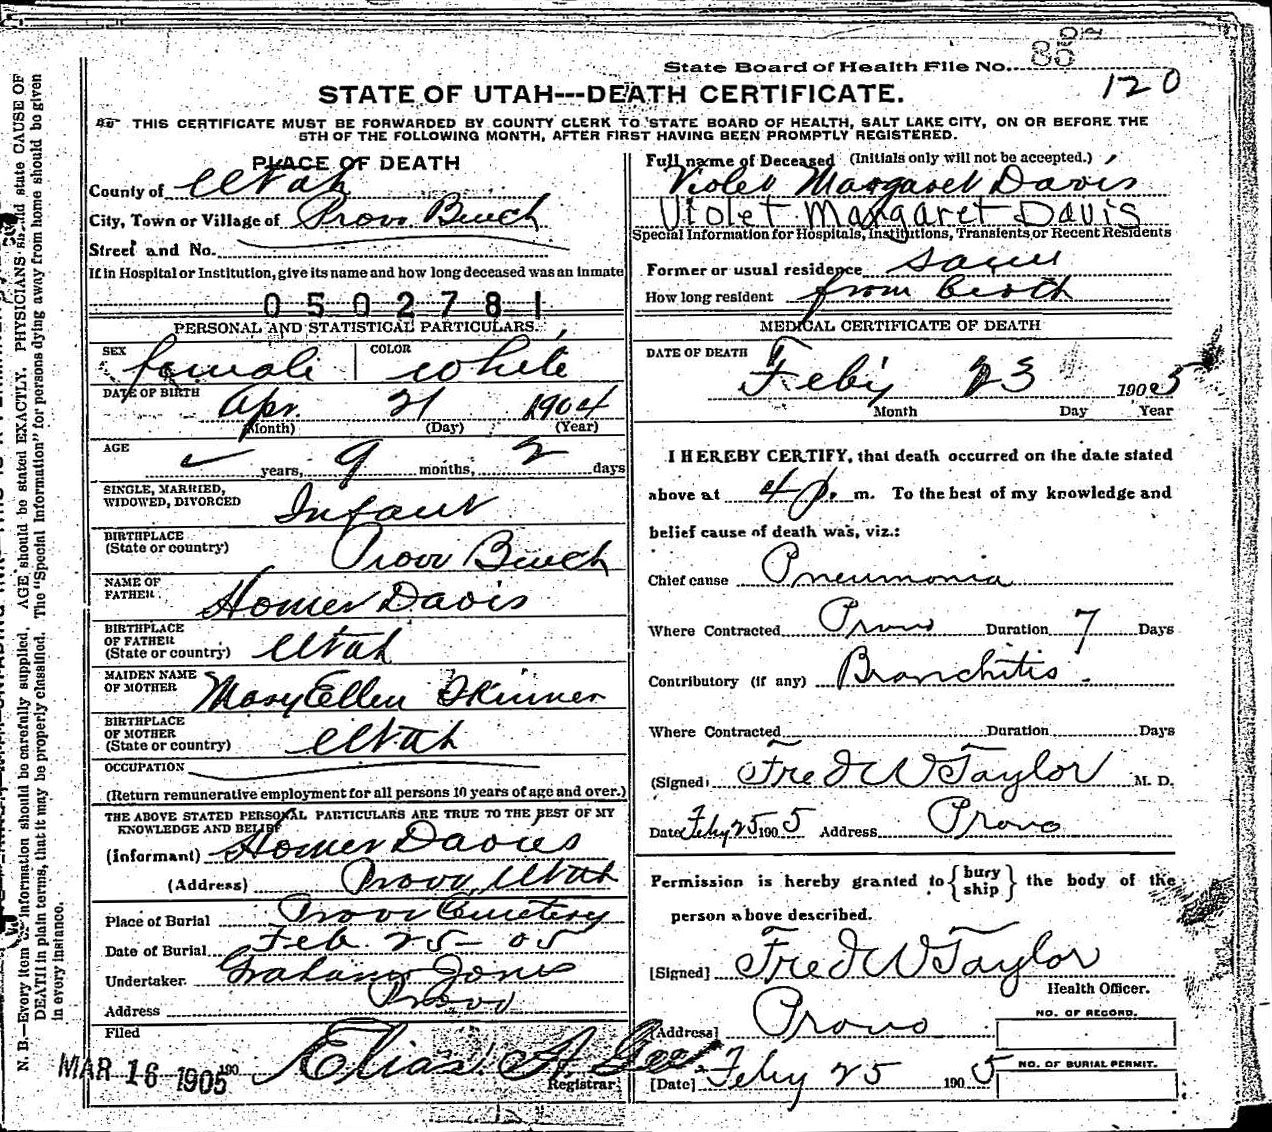 85
State Board of Health File No.
120
STATE OF UTAH---DEATH CERTIFICATE.
THIS CERTIFICATE MUST BE FORWARDED BY COUNTY CLERK TO STATE BOARD OF HEALTH, SALT LAKE CITY, ON OR BEFORE THE
5TH OF THE FOLLOWING MONTH, AFTER FIRST HAVING BEEN PROMPTLY REGISTERED.
PLACE OF DEATH
County of Utah
City, Town or Village of Provo Bench
Street and No.
If in Hospital or Institution, give its name and how long deceased was an inmate
0502781
PERSONAL AND STATISTICAL PARTICULARS.
SEX female COLOR white
DATE OF BIRTH Apr. 21 1904
(Month) (Day) (Year)
AGE years, 9 months, 2 days
SINGLE, MARRIED,
WIDOWED, DIVORCED Infant
BIRTHPLACE
(State or country) Provo Bench
NAME OF
FATHER Homer Davis
BIRTHPLACE
OF FATHER
(State or country) Utah
MAIDEN NAME
OF MOTHER Mary Ellen Skinner
BIRTHPLACE
OF MOTHER
(State or country) Utah
OCCUPATION
(Return remunerative employment for all persons 10 years of age and over.)
THE ABOVE STATED PERSONAL PARTICULARS ARE TRUE TO THE BEST OF MY
KNOWLEDGE AND BELIEF
(Informant) Homer Davies
(Address) Provo, Utah
Place of Burial Provo Cemetery
Date of Burial Feb. 25-05
Undertaker Graham Jones
Address Provo
Filed
MAR 16 1905 190 Elias A. Gee.
Registrar
Full name of Deceased (Initials only will not be accepted.)
Violet Margaret Davis
Violet Margaret Davis
Special Information for Hospitals, Institutions, Transients or Recent Residents
Former or usual residence same
How long resident from birth
MEDICAL CERTIFICATE OF DEATH
DATE OF DEATH Feby 23 1905
Month Day Year
I HEREBY CERTIFY, that death occurred on the date stated
above at 4 p. m. To the best of my knowledge and
belief cause of death was, viz.:
Chief cause Pneumonia
Where Contracted Provo Duration 7 Days
Contributory (if any) Bronchitis.
Where Contracted Duration Days
(Signed) Fred W Taylor M. D.
Date Feby 25 1905 Address Provo
Permission is hereby granted to {bury
ship} the body of the
person above described.
[Signed] Fred W Taylor
Health Officer.
[Address] Provo
NO. OF RECORD.
[Date] Feby 25 1905
NO. OF BURIAL PERMIT.
N. B.—Every item of information should be carefully supplied. AGE should be stated EXACTLY. PHYSICIANS should state CAUSE OF
DEATH in plain terms, that it may be properly classified. The "Special Information" for persons dying away from home should be given
in every instance.